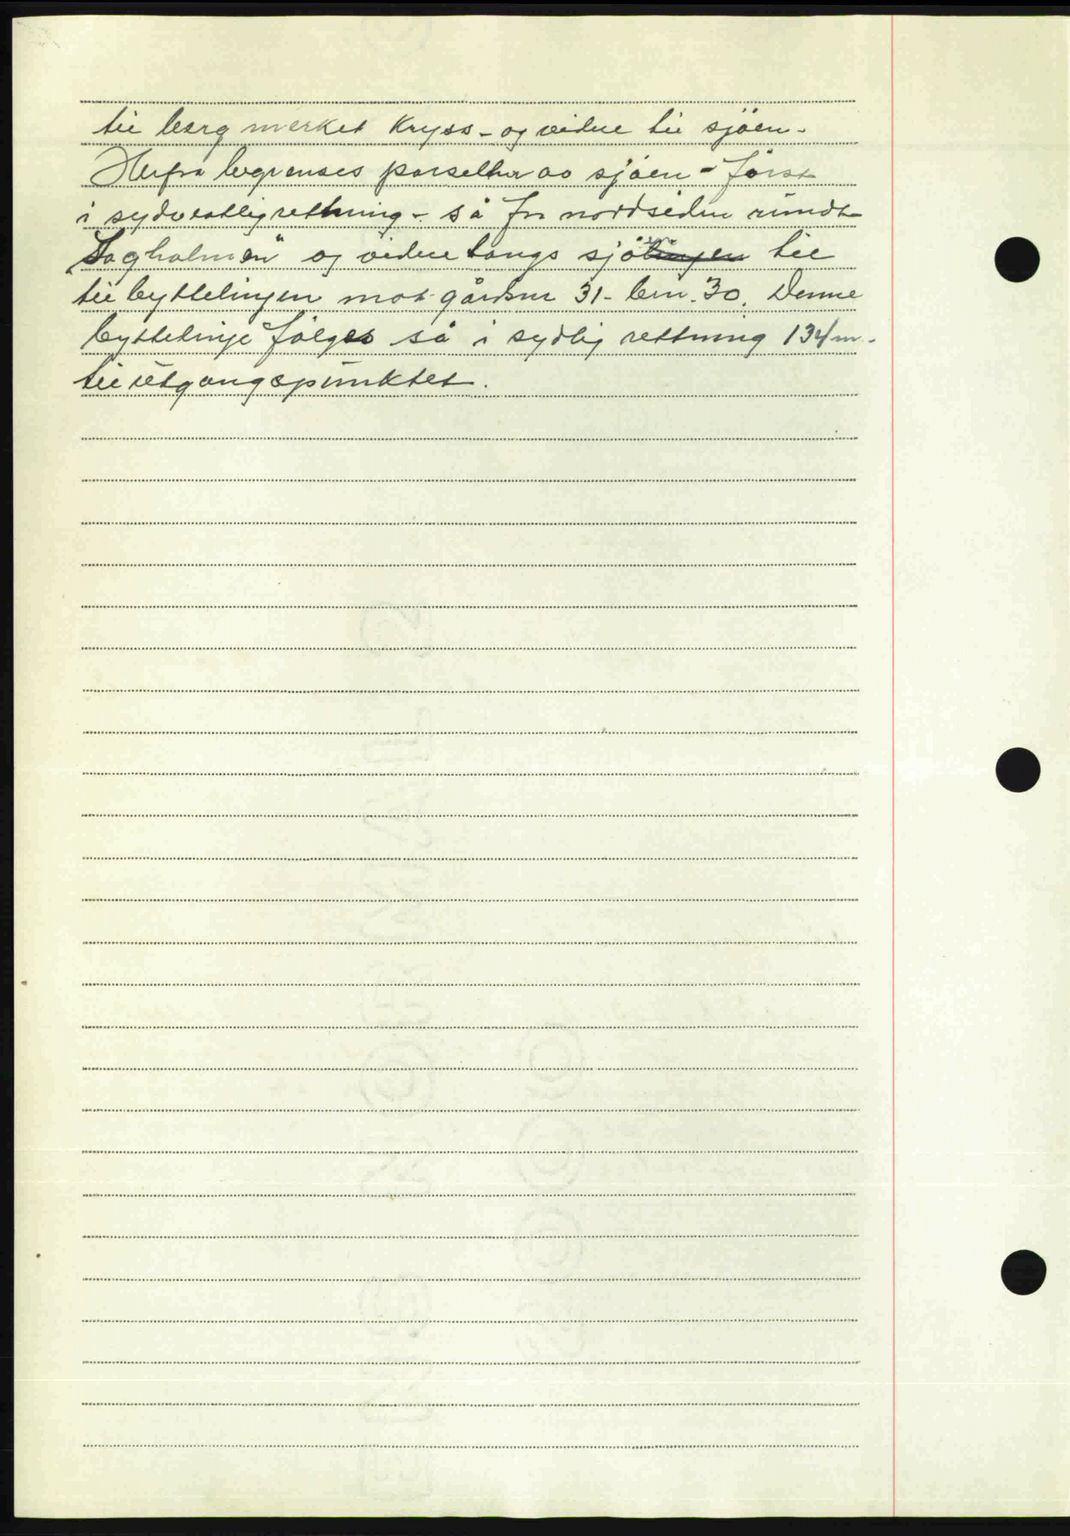 til berg merket Kryss - og videre til sjöen -
Herfra begrenses parsellen av sjöen - först
i sydvestlig rettning - så fra nordsiden rundt
"Sagholmen" og videre langs sjö til
til byttelinjen mot gårdsnr 31 - brn. 30. Denne
byttelinje fölges så i sydlig rettning 134 m -
til utgangspunktet.